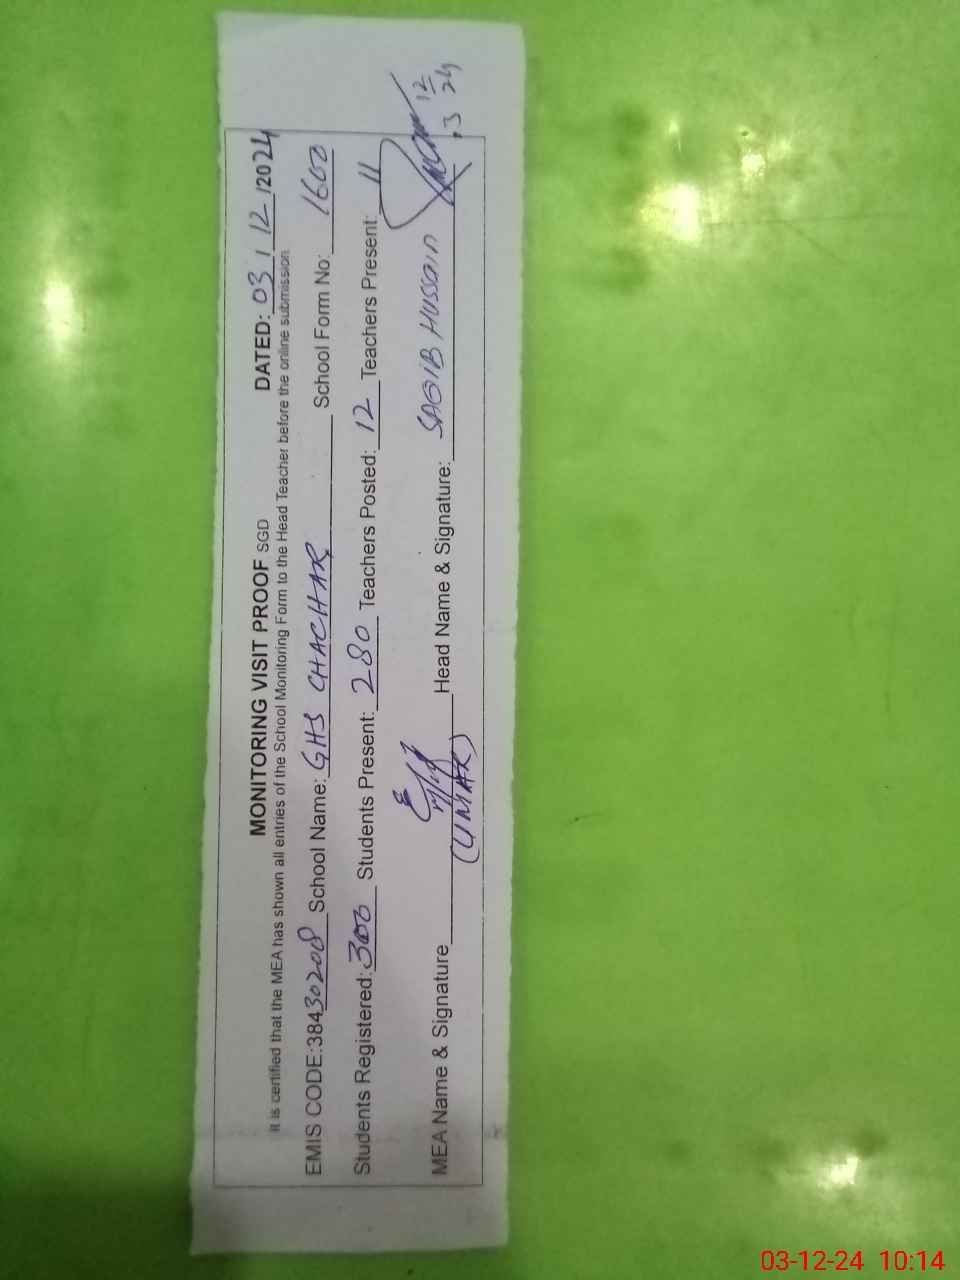 MONITORING VISIT PROOF SGD DATED: 03 / 12 /2024
It is certified that the MEA has shown all entries of the School Monitoring Form to the Head Teacher before the online submission
EMIS CODE:38430208 School Name: GHS CHACHAR School Form No: 1600
Students Registered: 300 Students Present: 280 Teachers Posted: 12 Teachers Present: 11
MEA Name & Signature (UMAR) Head Name & Signature: SAQIB HUSSAIN
3 12 24
03-12-24 10:14